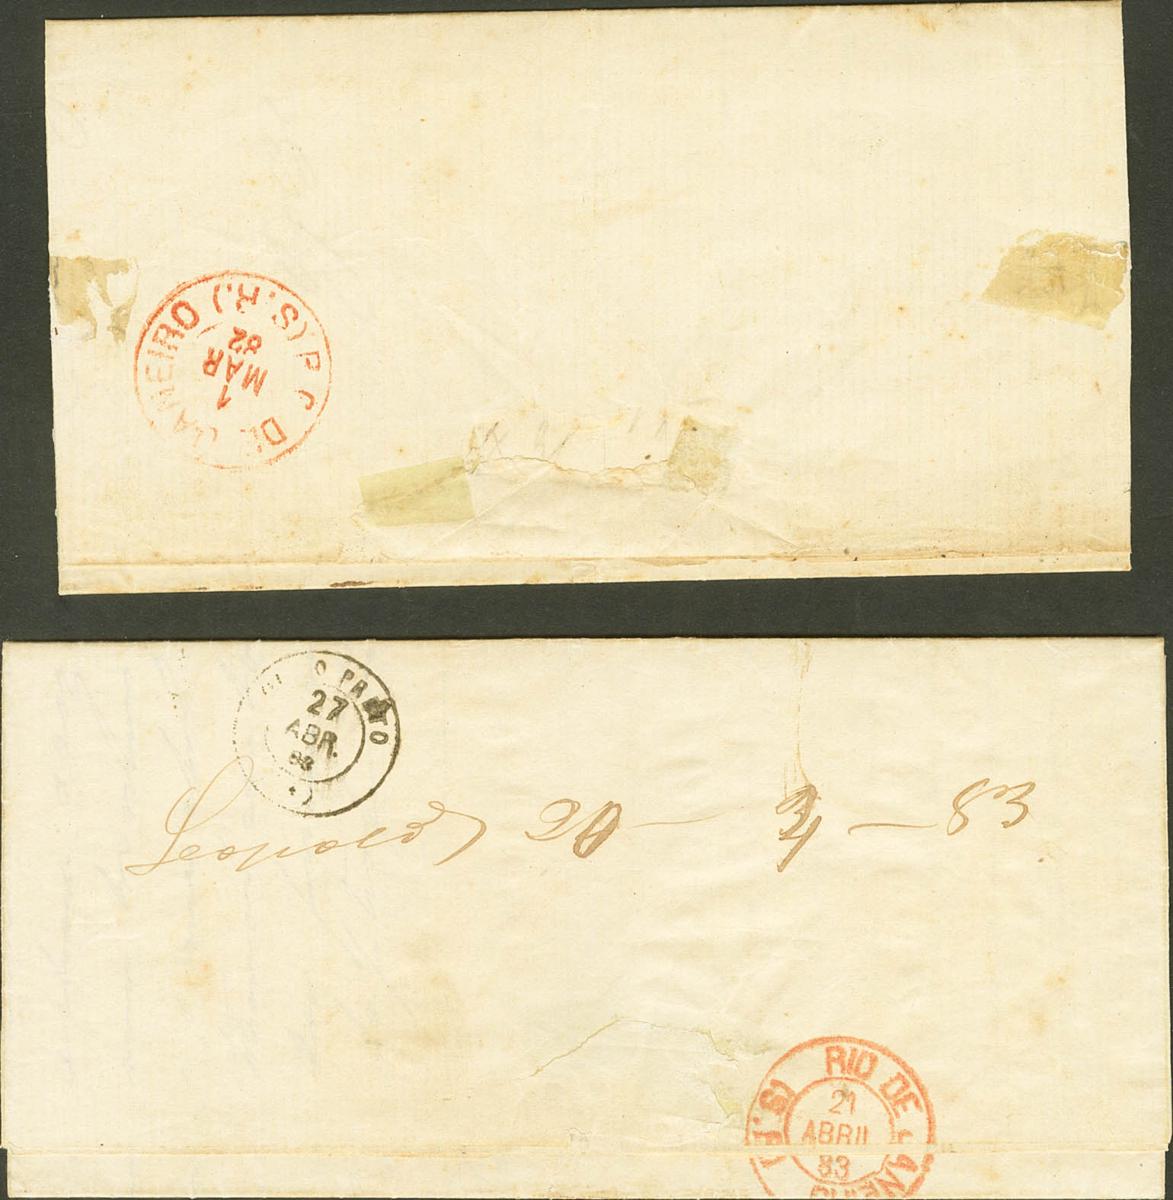 DE JANEIRO (S.R.)
1
MAR
82
PRETO
27
ABR.
83
Leopolda 20 - 4 - 83
RIO DE JANEIRO (S.R.)
21
ABRIL
83